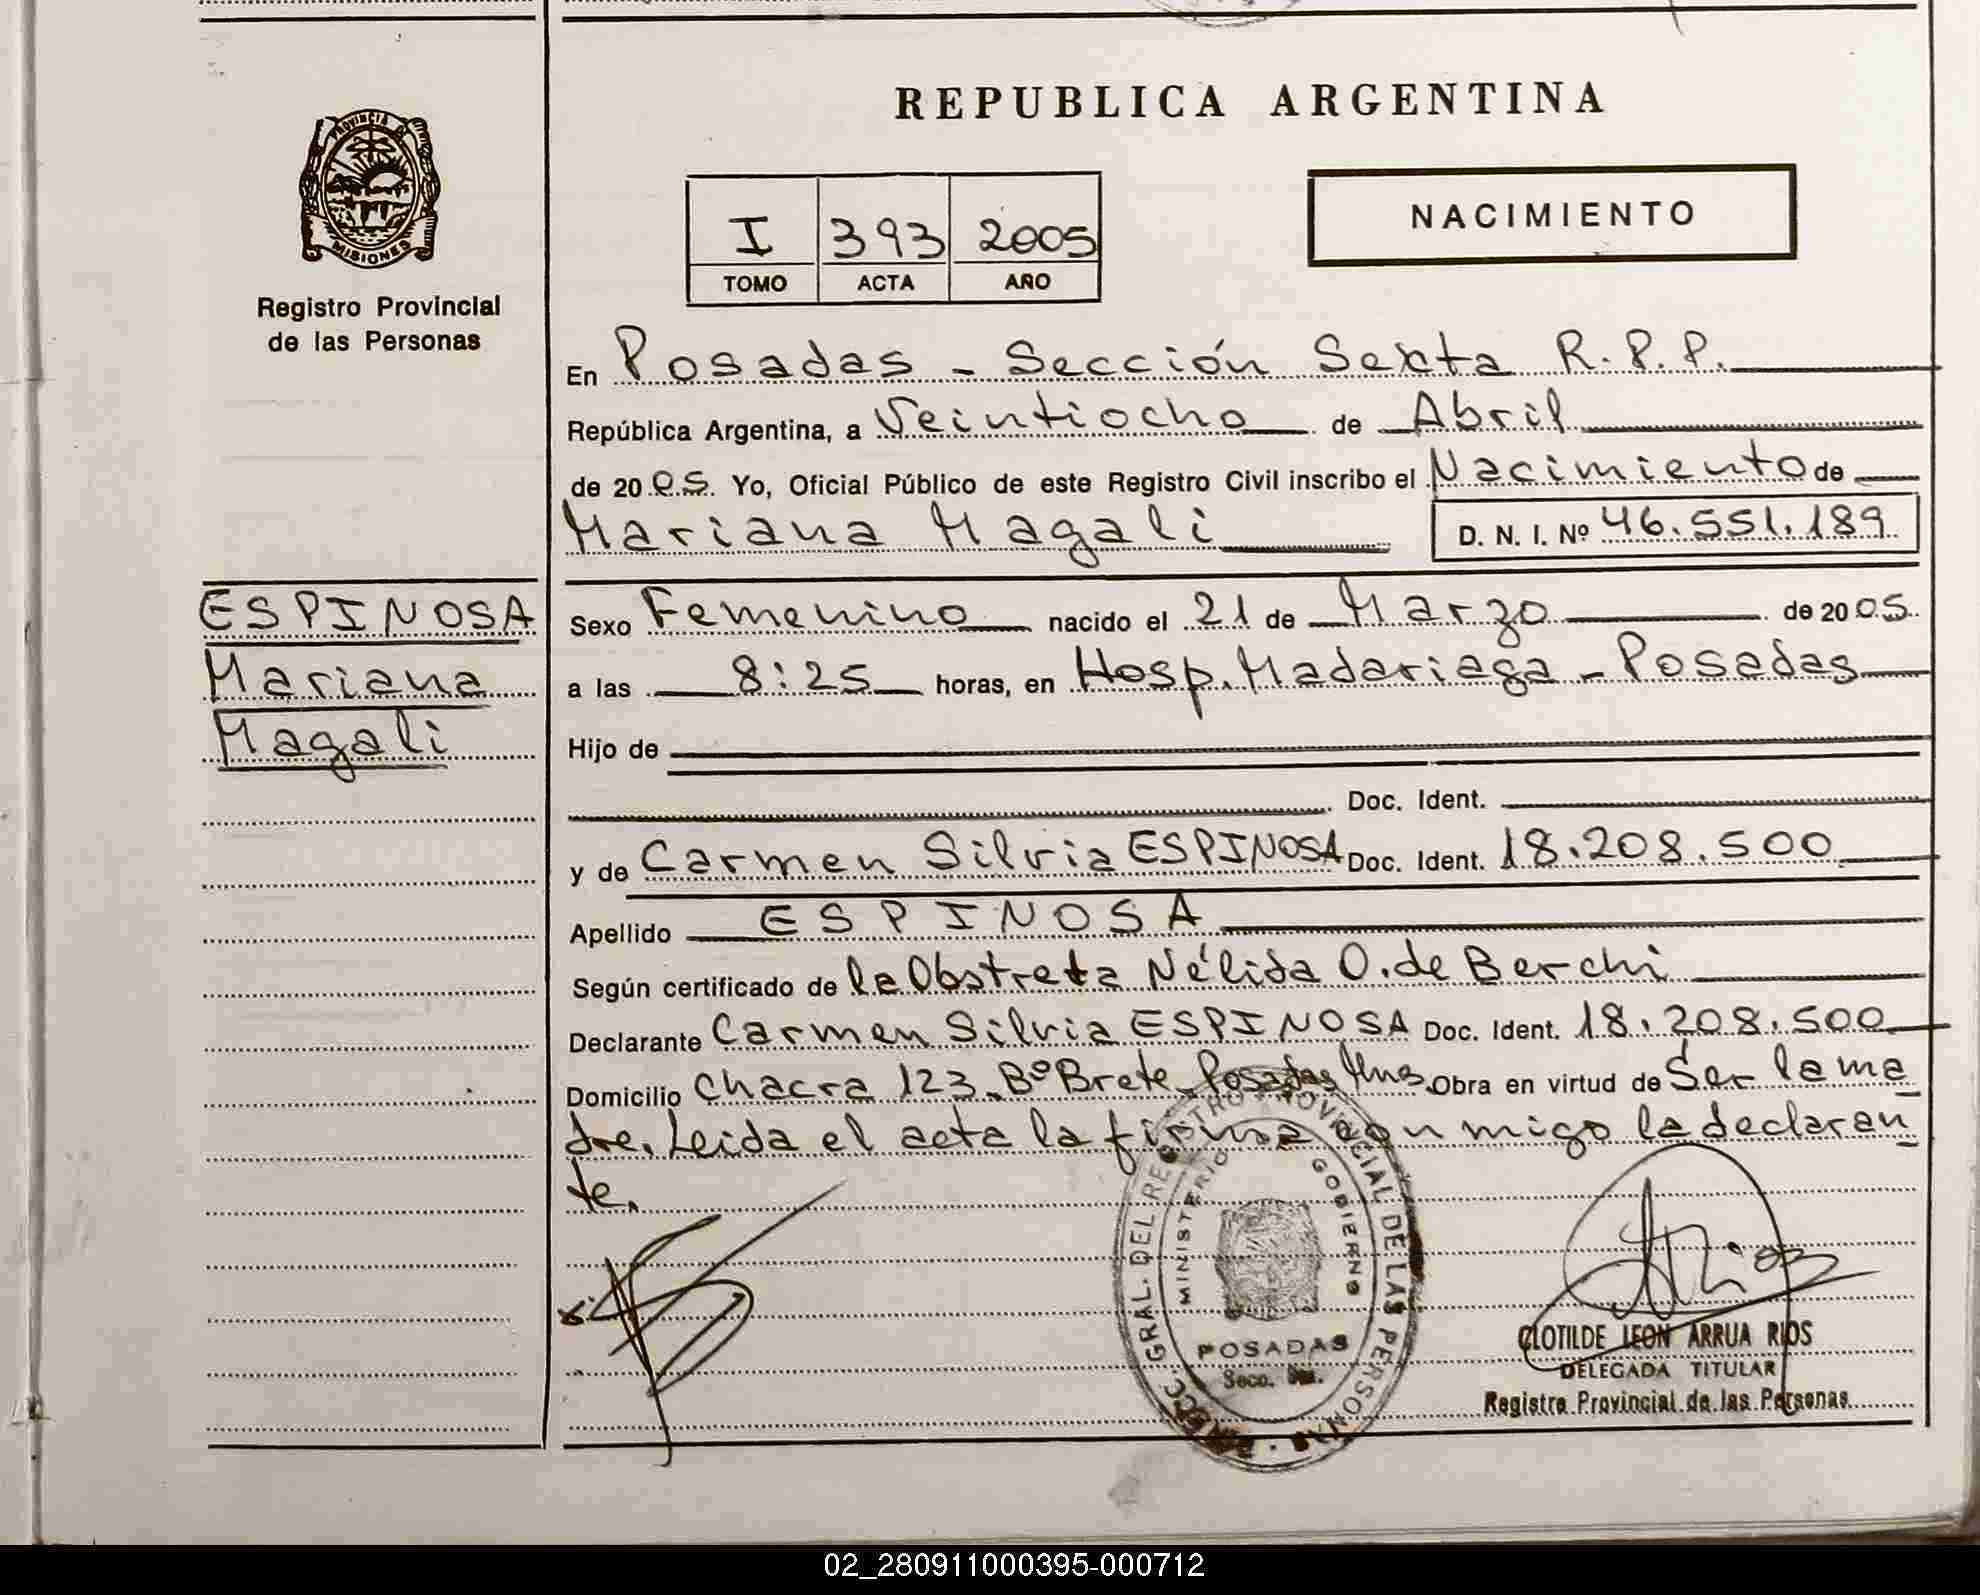 REPUBLICA ARGENTINA
PROVINCIA DE
MISIONES
Registro Provincial
de las Personas
I 393 2005
TOMO ACTA AÑO
NACIMIENTO
En Posadas - Sección Sexta R.P.P.
República Argentina, a Veintiocho de Abril
de 2005. Yo, Oficial Público de este Registro Civil inscribo el Nacimiento de
Mariana Magali
D. N. I. Nº 46.551.189
ESPINOSA
Mariana
Magali
Sexo Femenino nacido el 21 de Marzo de 2005.
a las 8:25 horas, en Hosp. Madariaga - Posadas
Hijo de
Doc. Ident.
y de Carmen Silvia ESPINOSA Doc. Ident. 18.208.500
Apellido ESPINOSA
Según certificado de la Obstreta Nélida O. de Berchi
Declarante Carmen Silvia ESPINOSA Doc. Ident. 18.208.500
Domicilio Chacra 123. Bº Brete. Posadas Mnes Obra en virtud de Ser la ma
dre. Leida el acta la firma con migo la declaran
te.
GRAL. DEL REGISTRO PROVINCIAL DE LAS PERSONAS
MINISTERIO GOBIERNO
POSADAS
Secc.
CLOTILDE LEON ARRUA RIOS
DELEGADA TITULAR
Registro Provincial de las Personas
02_280911000395-000712